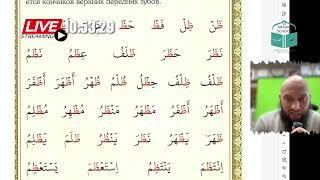 ется кончиков верхних передних зубов.
LIVE 10:53:29
STREAMING
ظَنَّ ظِلّ فَظّ حَظّ
نَظَرَ حَظَرَ ظَلْف عِظَمُ نَظْمُ
ظَلَفَ ظِلْف ظُلْم ظُهْرُ أَظْهَرَ أَظْفَرَ
أَظْفَرُ نَظَرَ مُظْهِرُ مُظْلِمُ
ظَهَرَ يَظْهَرُ نَظَرَ يَنْظُرُ ظَلَمَ يَظْلِمُ
اِنْتَظَمَ يَنْتَظِمُ اِسْتَعْظَمَ يَسْتَعْظِمُ